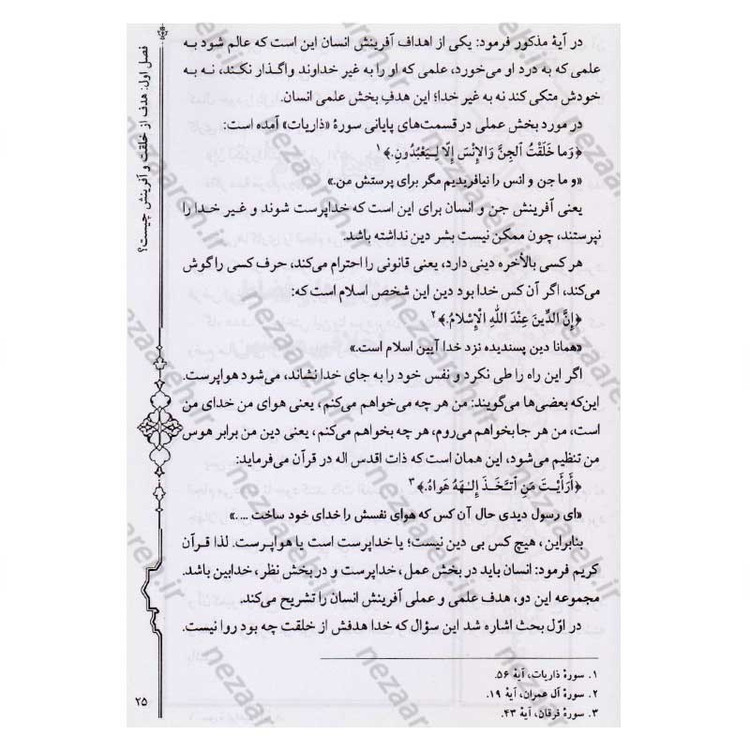 فصل اول: هدف از خلقت و آفرینش چیست؟
در آیهٔ مذکور فرمود: یکی از اهداف آفرینش انسان این است که عالم شود به
علمی که به درد او می‌خورد، علمی که او را به غیر خداوند واگذار نکند، نه به
خودش متکی کند نه به غیر خدا؛ این هدفِ بخش علمی انسان.
در مورد بخش عملی در قسمت‌های پایانی سورهٔ «ذاریات» آمده است:
﴿وَما خَلَقْتُ الْجِنَّ وَالإِنْسَ إِلَّا لِيَعْبُدُونِ.﴾۱
«و ما جن و انس را نیافریدیم مگر برای پرستش من.»
یعنی آفرینش جن و انسان برای این است که خداپرست شوند و غیر خدا را
نپرستند، چون ممکن نیست بشر دین نداشته باشد.
هر کسی بالأخره دینی دارد، یعنی قانونی را احترام می‌کند، حرف کسی را گوش
می‌کند، اگر آن کس خدا بود دین این شخص اسلام است که:
﴿إِنَّ الدِّينَ عِنْدَ اللَّهِ الْإِسْلامُ.﴾۲
«همانا دین پسندیده نزد خدا آیین اسلام است.»
اگر این راه را طی نکرد و نفس خود را به جای خدا نشاند، می‌شود هواپرست.
این‌که بعضی‌ها می‌گویند: من هر چه می‌خواهم می‌کنم، یعنی هوای من خدای من
است، من هر جا بخواهم می‌روم، هر چه بخواهم می‌کنم، یعنی دین من برابر هوس
من تنظیم می‌شود، این همان است که ذات اقدس اله در قرآن می‌فرماید:
﴿أَرَأَيْتَ مَنِ اتَّخَذَ إِلهَهُ هَواهُ.﴾۳
«ای رسول دیدی حال آن کس که هوای نفسش را خدای خود ساخت ....»
بنابراین، هیچ کس بی دین نیست؛ یا خداپرست است یا هواپرست. لذا قرآن
کریم فرمود: انسان باید در بخش عمل، خداپرست و در بخش نظر، خدابین باشد.
مجموعه این دو، هدف علمی و عملی آفرینش انسان را تشریح می‌کند.
در اوّل بحث اشاره شد این سؤال که خدا هدفش از خلقت چه بود روا نیست.
۱. سورهٔ ذاریات، آیهٔ ۵۶.
۲. سورهٔ آل عمران، آیهٔ ۱۹.
۳. سورهٔ فرقان، آیهٔ ۴۳.
۲۵
nezaareh.ir
nezaareh.ir
nezaareh.ir
nezaareh.ir
nezaareh.ir
nezaareh.ir